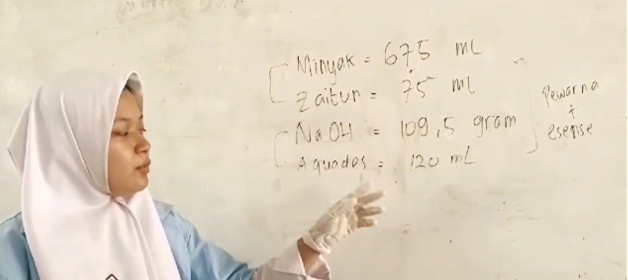 Minyak = 675 ml
Zaitun = 75 ml
NaOH = 109,5 gram
Aquades = 120 mL
Pewarna
+
esense